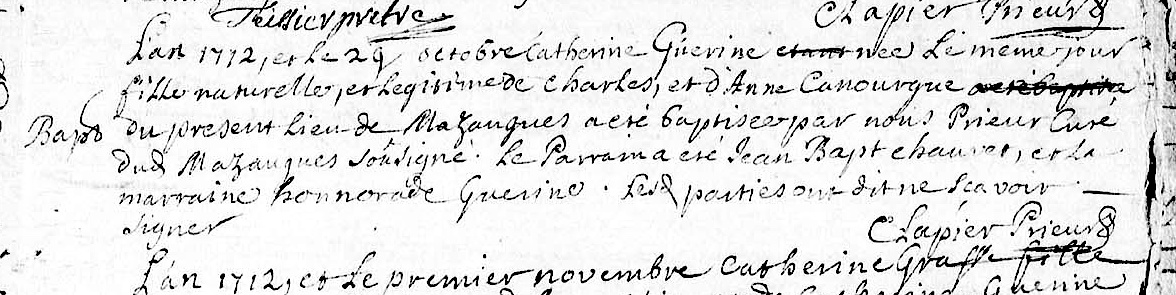 Teissier prêtre Clapier Prieur
L'an 1712, et le 29 octobre Catherine Guerine etant née le même jour
fille naturelle, et legitime de Charles, et d'Anne Canourgue a eté baptisée
Bapt du present lieu de Mazauques a eté baptisée par nous Prieur Curé
dud Mazauques soûsigné. Le Parrain a eté Jean Bapt chauvet, et la
marraine honnorade Guerine. Lesd parties ont dit ne sçavoir
signer
Clapier Prieur
L'an 1712, et le premier novembre Catherine Grasse fille
Guerine